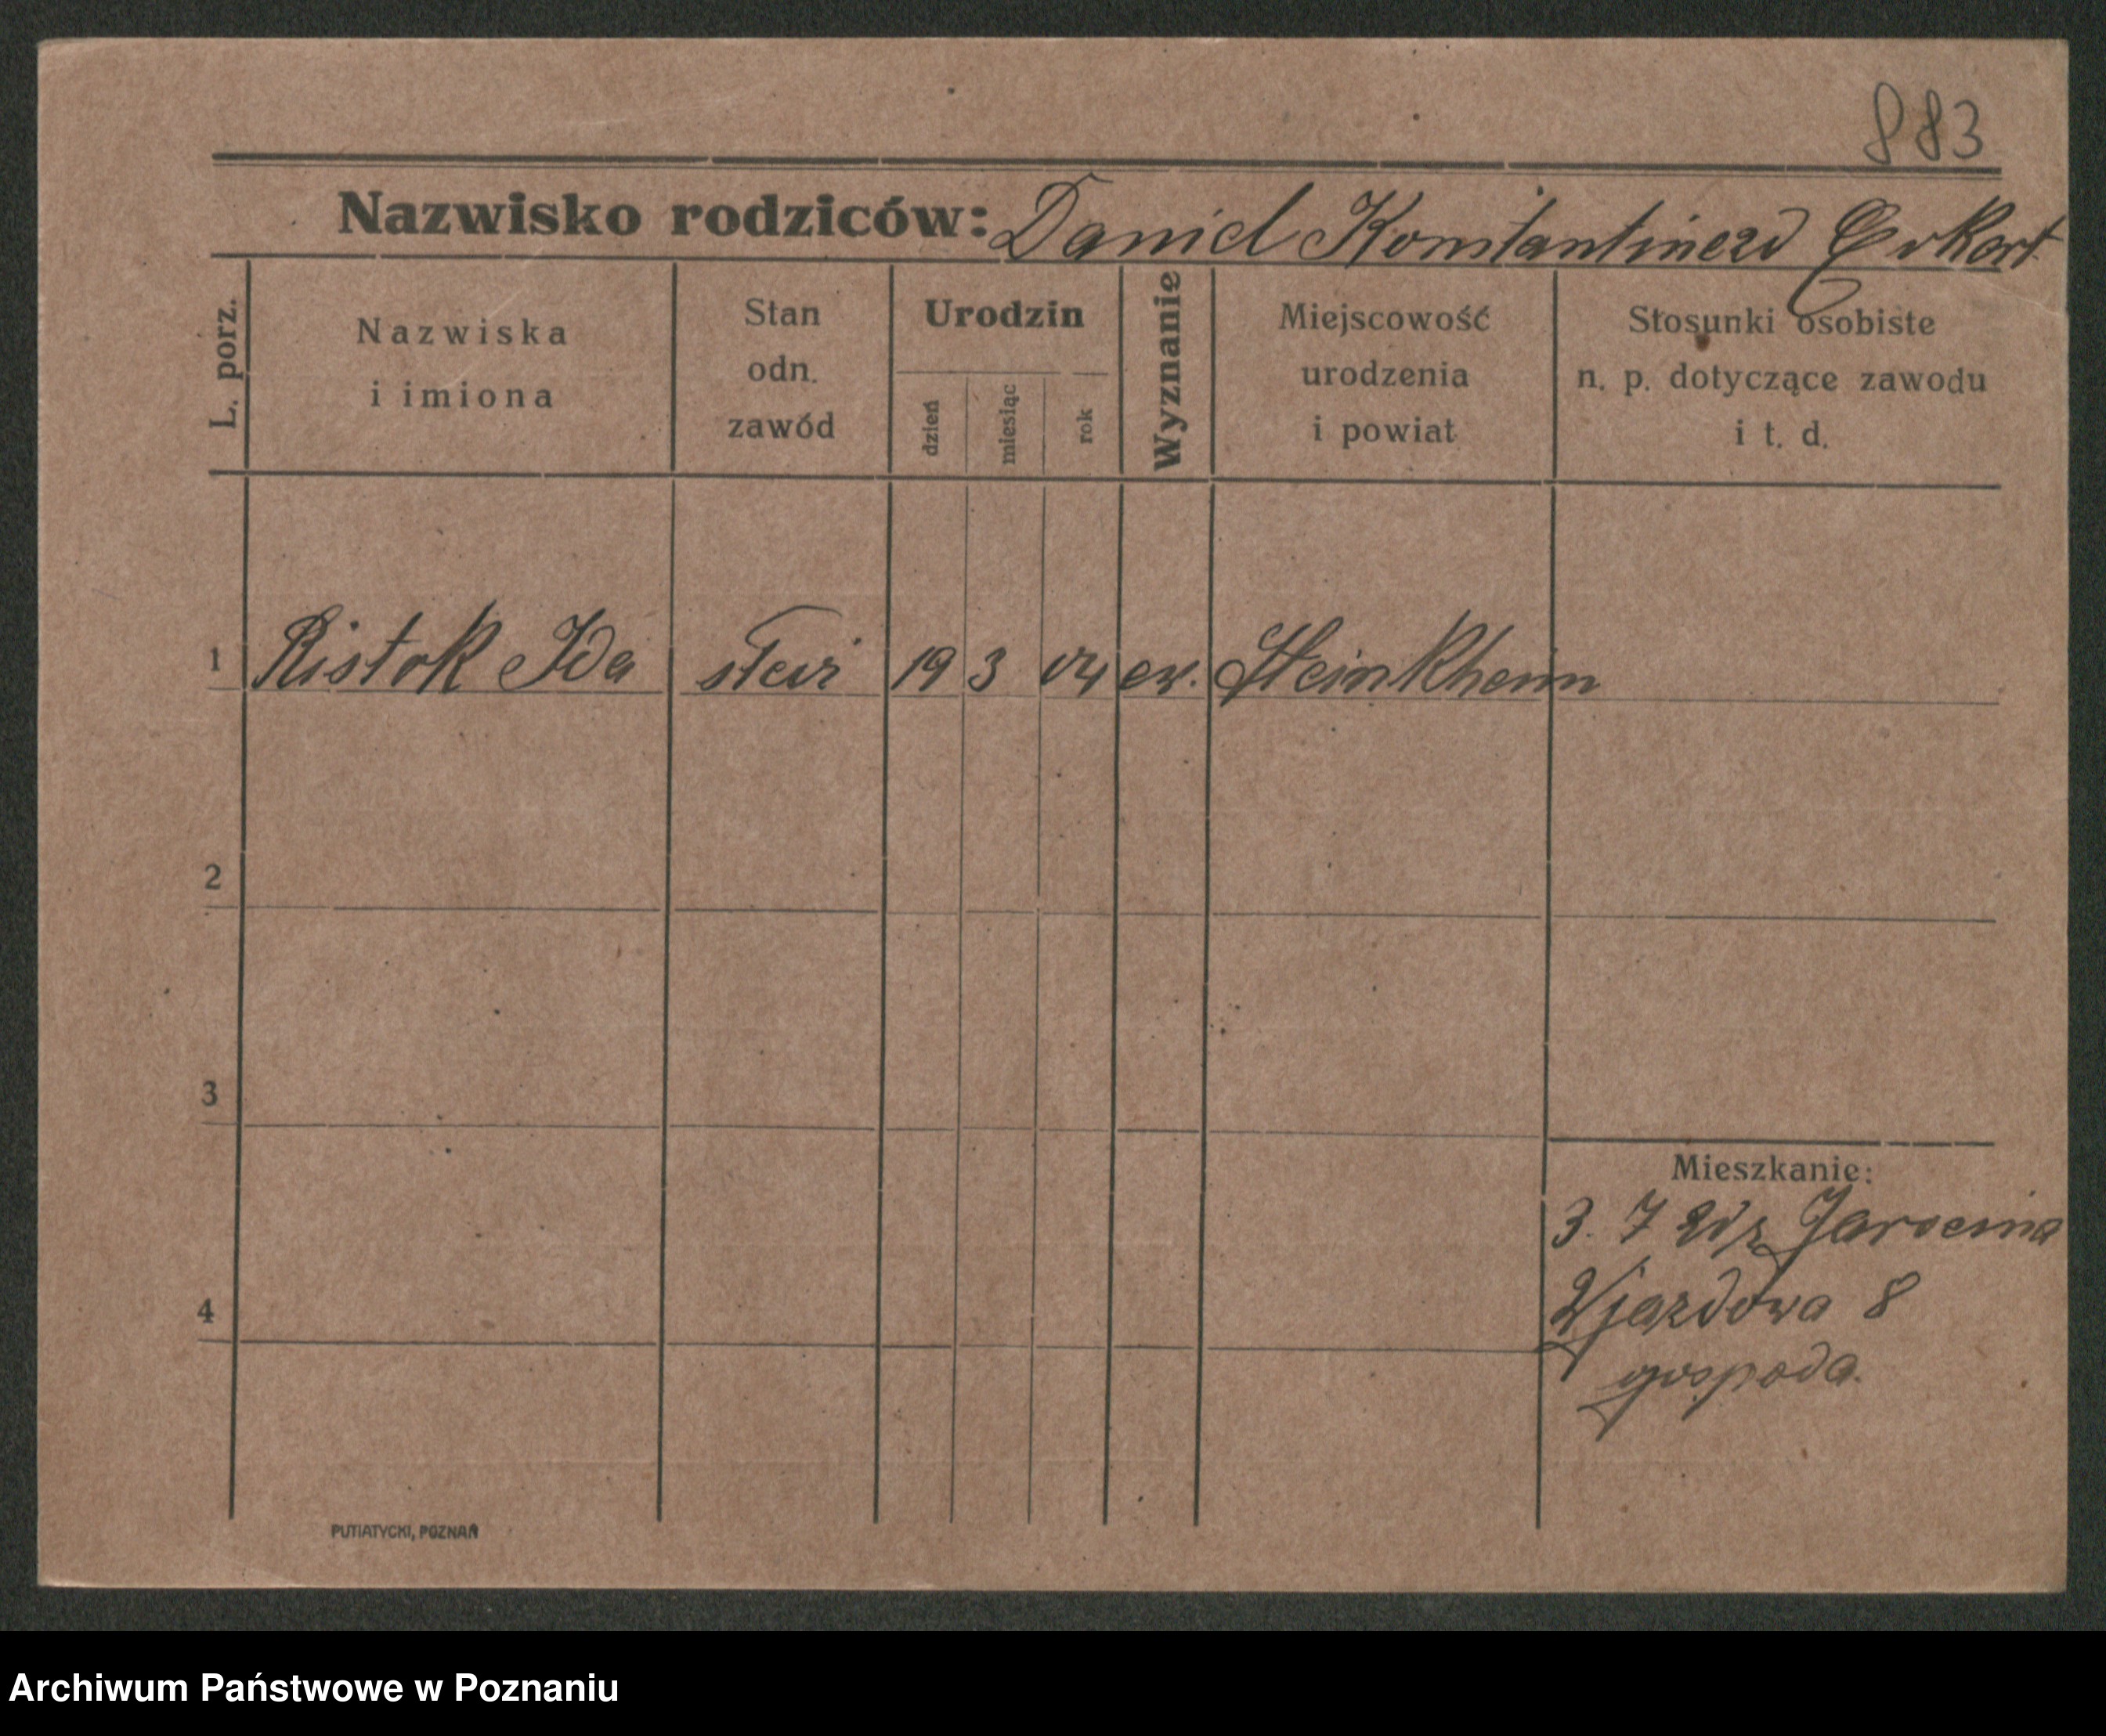 883
Nazwisko rodziców: Daniel Konstantine zd Erkert
L. porz.
Nazwiska
i imiona
Stan
odn.
zawód
Urodzin
dzień
miesiąc
rok
Wyznanie
Miejscowość
urodzenia
i powiat
Stosunki osobiste
n. p. dotyczące zawodu
i t. d.
1 Ristok Ida 19 3 04 ew. Steinkheim
2
3
Mieszkanie:
3. 7 z Jarocina
4
Wjazdowa 8
gospoda.
PUTIATYCKI, POZNAŃ
Archiwum Państwowe w Poznaniu